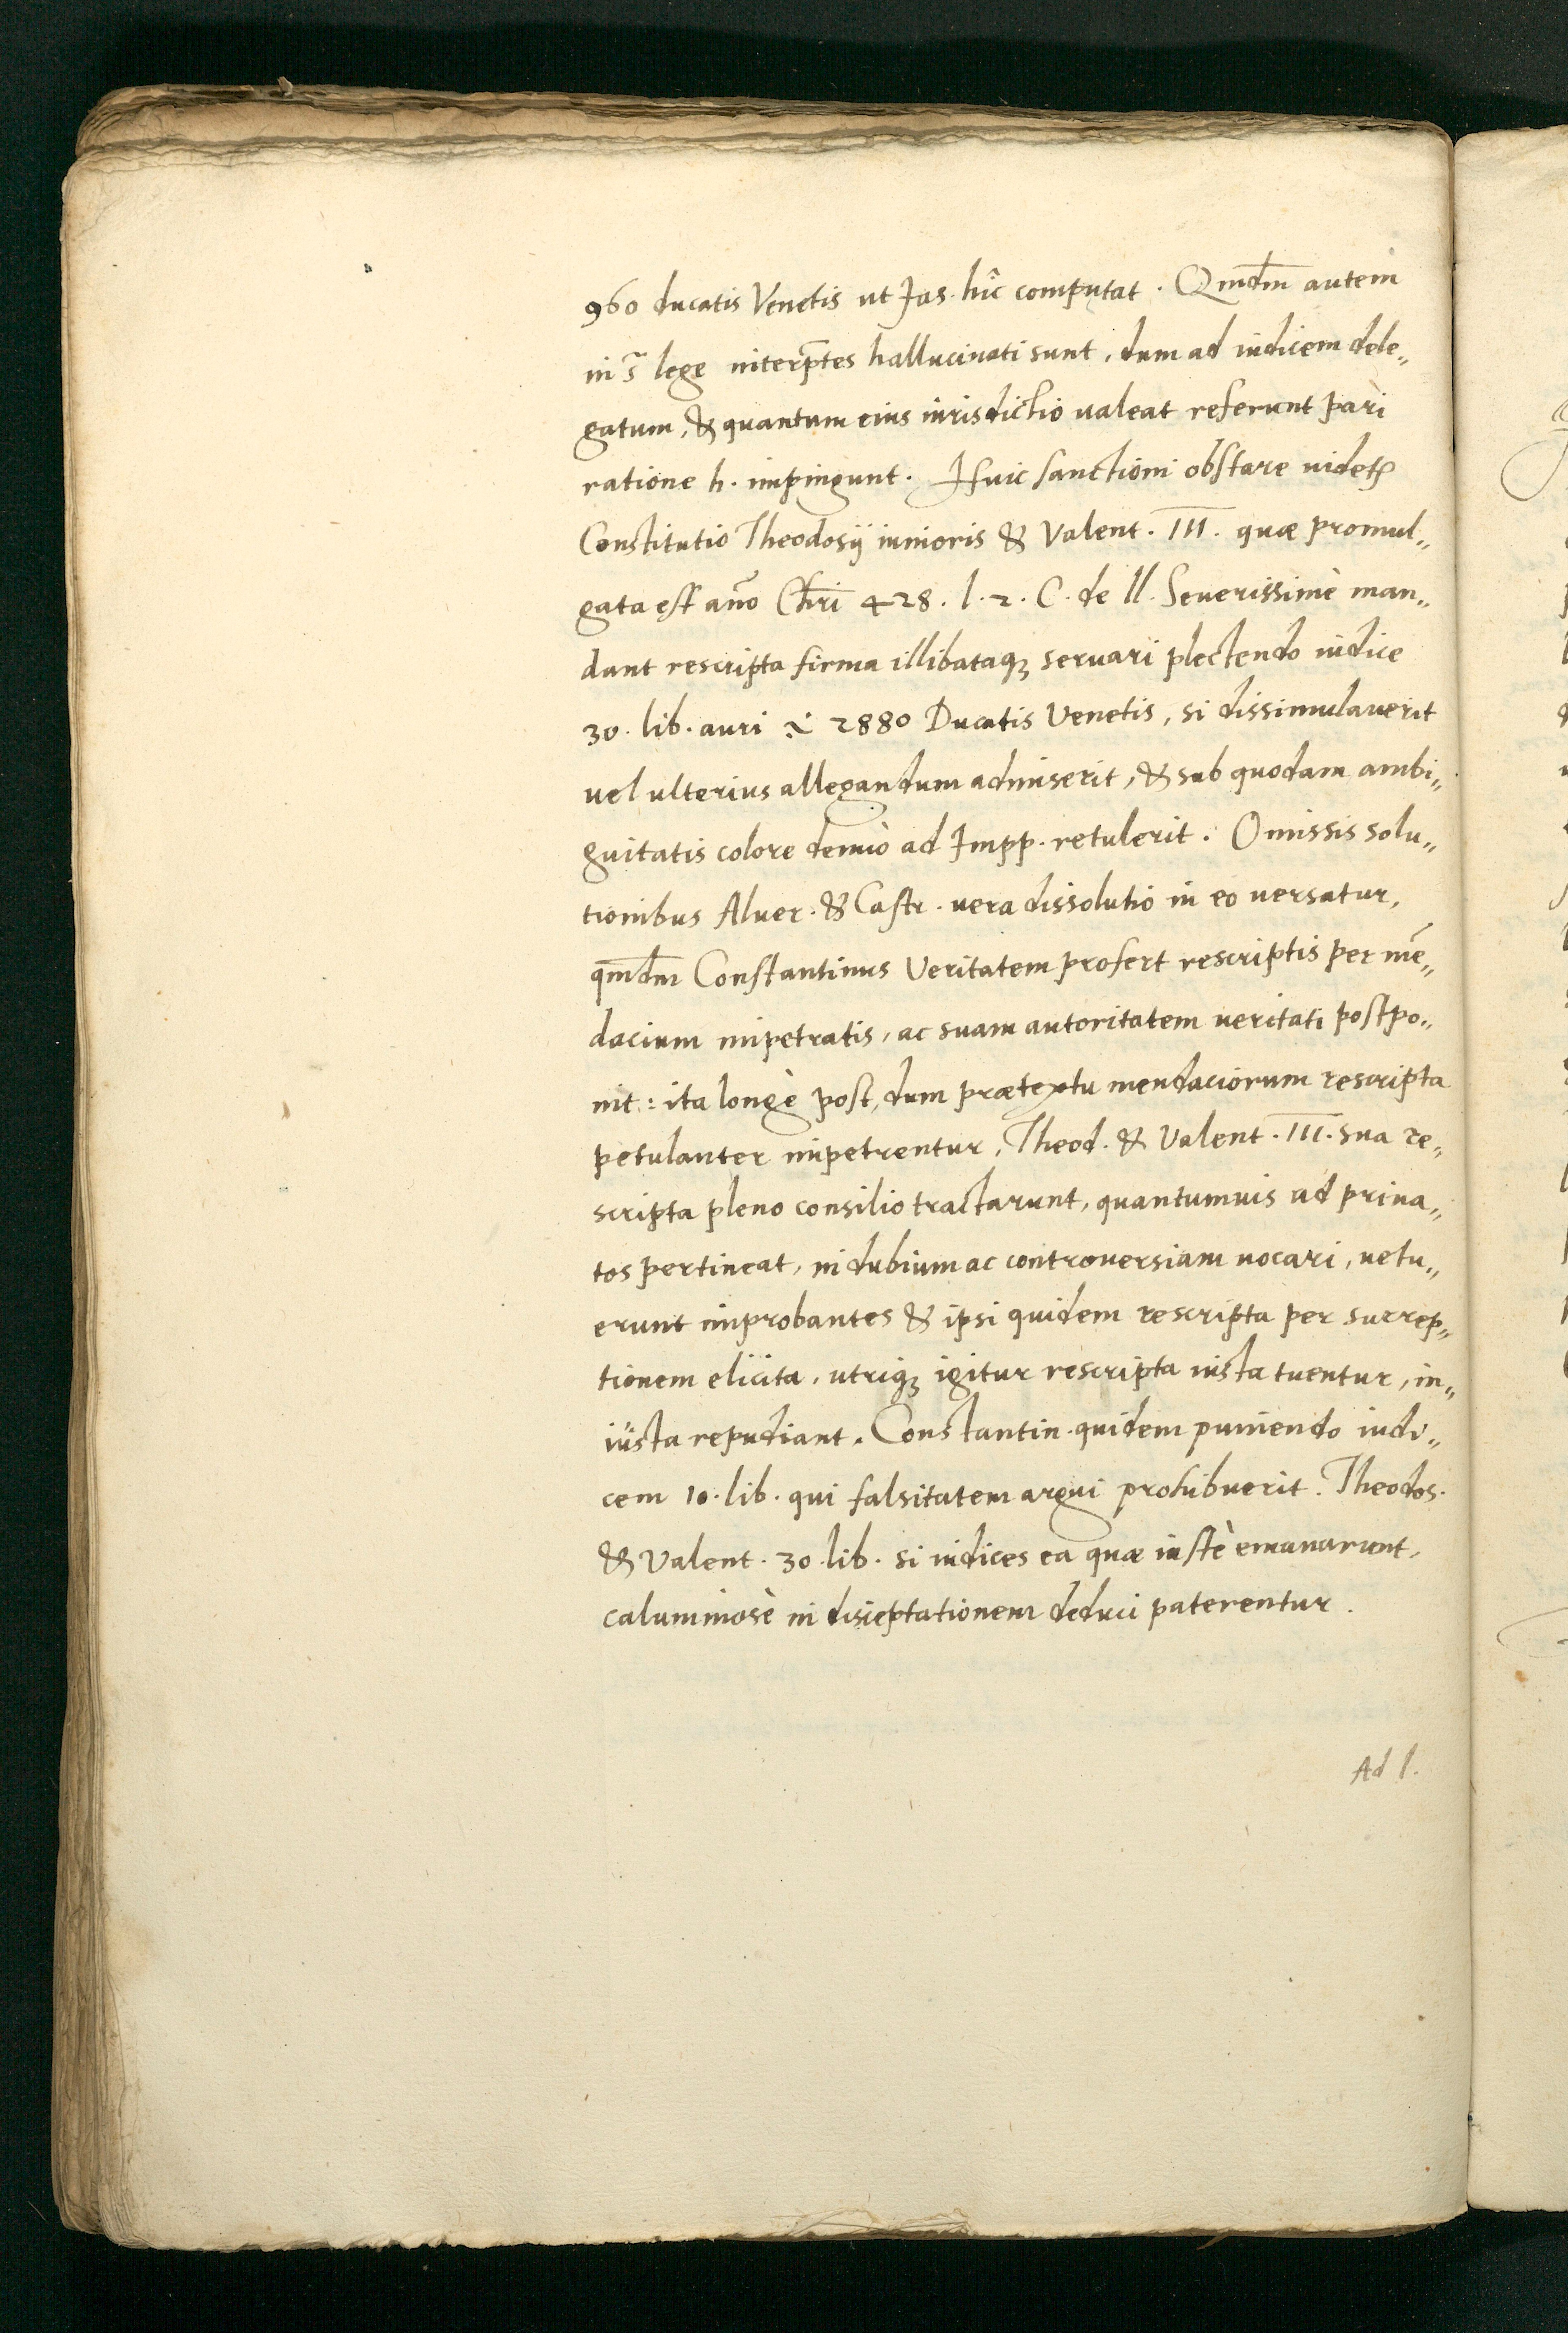 960 ducatis Venetis ut Jas. hîc computat. Qm̄dm̄ autem
in 3ā lege interp̄tes hallucinati sunt, dum ad iudicem dele„
gatum, & quantum eius iurisdictio ualeat referunt pari
ratione h. impingunt. Huic sanctioni obstare uidetꝛ
Constitutio Theodosÿ iunioris & Valent. III. quæ promul„
gata est año Chr̄i 428. l. 2. C. de ll. Seuerissimè man„
dant rescripta firma illibataqꝫ seruari plectendo iudice
30. lib. auri .i. 2880 Ducatis Venetis, si dissimulauerit
uel ulterius allegandum admiserit, & sub quodam ambi„
guitatis colore denuò ad Impp. retulerit. Omissis solu„
tionibus Aluer. & Castr. uera dissolutio in eo uersatur,
qm̄dm̄ Constantinus Veritatem profert rescriptis per mē„
dacium impetratis, ac suam autoritatem ueritati postpo„
nit: ita longè post, dum prætextu mendaciorum rescripta
petulanter impetrentur, Theod. & Valent. III. sua re„
scripta pleno consilio tractarunt, quantumuis ad priua„
tos pertineat, in dubium ac controuersiam uocari, uetu„
erunt improbantes & ipsi quidem rescripta per surrep„
tionem elicita, utriqꝫ igitur rescripta iusta tuentur, in„
iusta repudiant. Constantin. quidem puniendo iudi„
cem 10. lib. qui falsitatem argui prohibuerit. Theodos.
& Valent. 30. lib. si iudices ea quæ iustè emanarunt,
calumniosè in disceptationem deduci paterentur.
Ad l.